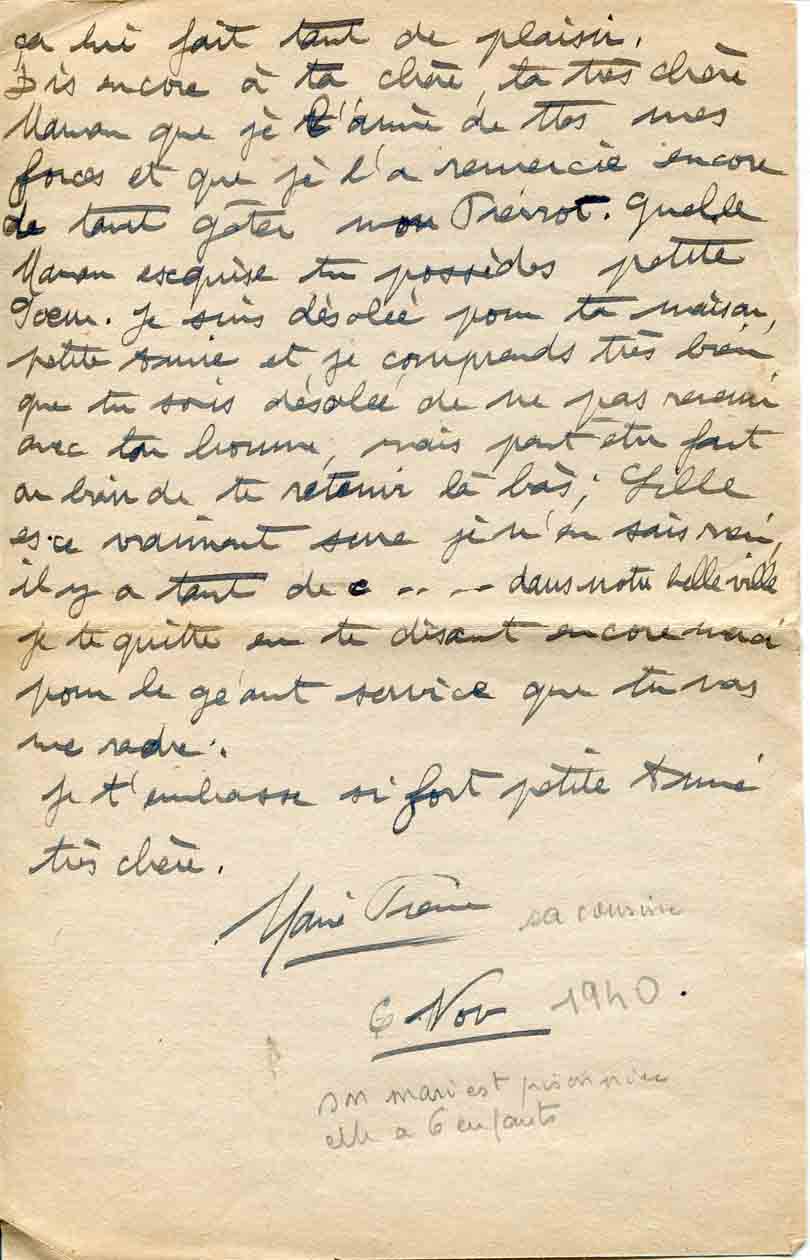 ça lui fait tant de plaisir.
Dis encore à ta chère, ta très chère
Maman que je l'aime de ttes mes
forces et que je l'a remercie encore
de tant gâter mon Pierrot. Quelle
Maman exquise tu possèdes petite
Soeur. Je suis désolée pour ta maison,
petite Amie et je comprends très bien
que tu sois désolée de ne pas revenir
avec ton homme, mais peut etre fait
on bien de te retenir là bàs; Lille
es-ce vraiment sure je n'en sais rien,
il y a tant de c -- -- dans notre belle ville
Je te quitte en te disant encore merci
pour le géant service que tu vas
me radre.
Je t'embrasse si fort petite Amie
très chère.
Marie sa cousine
6 Nov 1940.
son mari est prisonnier
elle a 6 enfants